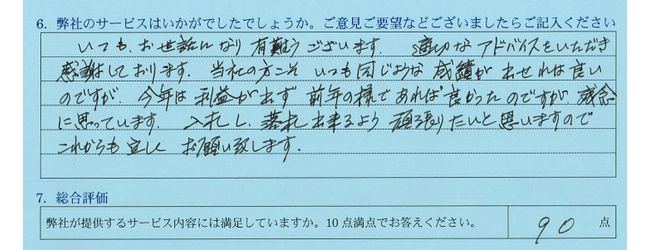 6. 弊社のサービスはいかがでしたでしょうか。ご意見ご要望などございましたらご記入ください
いつも、お世話になり 有難うございます。 適切なアドバイスをいただき
感謝しております。 当社の方こそ いつも同じような 成績が 出せれば良い
のですが、今年は 利益が出ず 前年の様であれば 良かったのですが、残念
に思っています。 入札し、落札出来るよう 頑張りたいと思いますので
これからも宜しく お願い致します。
7. 総合評価
弊社が提供するサービス内容には満足していますか。10 点満点でお答えください。 90 点